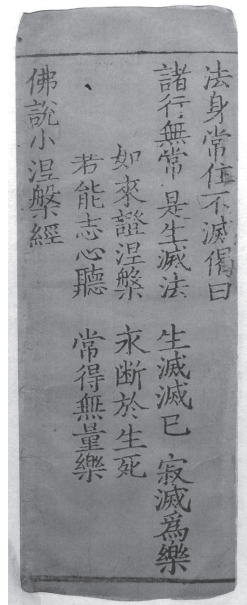 法身常住不滅偈曰
諸行無常 是生滅法 生滅滅已 寂滅爲樂
如來證涅槃 永断於生死
若能志心聽 常得無量樂
佛說小涅槃經